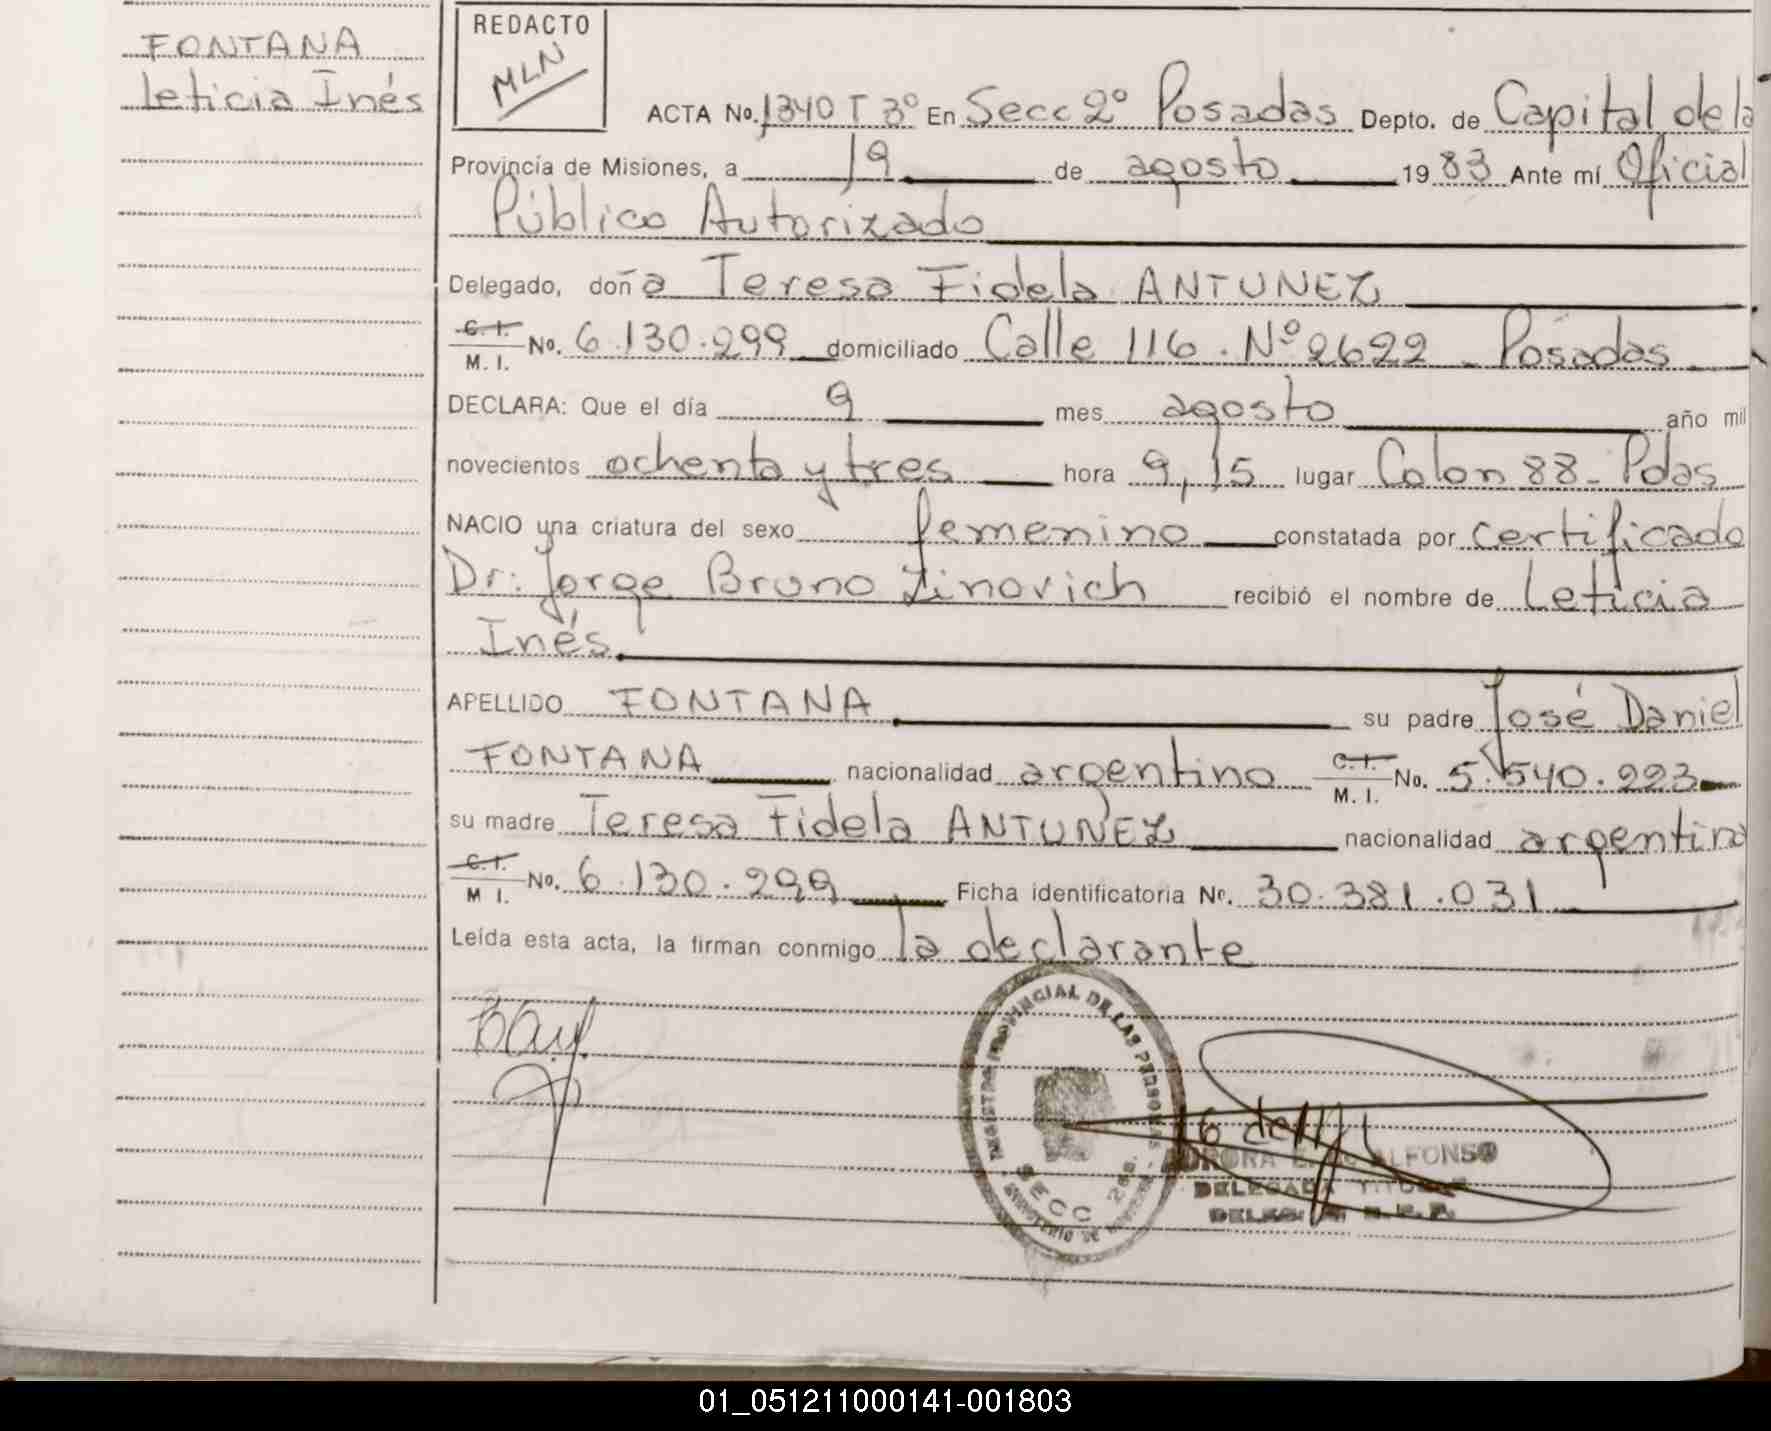 FONTANA
Leticia Inés
REDACTO
MLN
ACTA No. 1340 T 3º En Secc 2º Posadas Depto. de Capital de la
Provincia de Misiones, a 19 de agosto 1983 Ante mí Oficial
Público Autorizado
Delegado, doña Teresa Fidela ANTUNEZ
C. I. / M. I. No. 6.130.299 domiciliado Calle 116. Nº 2622 - Posadas
DECLARA: Que el día 9 mes agosto año mil
novecientos ochenta y tres hora 9,15 lugar Colon 88 - Pdas
NACIO una criatura del sexo femenino constatada por certificado
Dr: Jorge Bruno Zinovich recibió el nombre de Leticia
Inés
APELLIDO FONTANA su padre José Daniel
FONTANA nacionalidad argentino C. I. / M. I. No. 5.540.223
su madre Teresa Fidela ANTUNEZ nacionalidad argentina
C. I. / M I. No. 6.130.299 Ficha identificatoria Nº. 30.381.031
Leída esta acta, la firman conmigo la declarante
PROVINCIAL DE LAS PERSONAS
SECC 2da.
ALFONSO
DELEGADA TITULAR
01_051211000141-001803